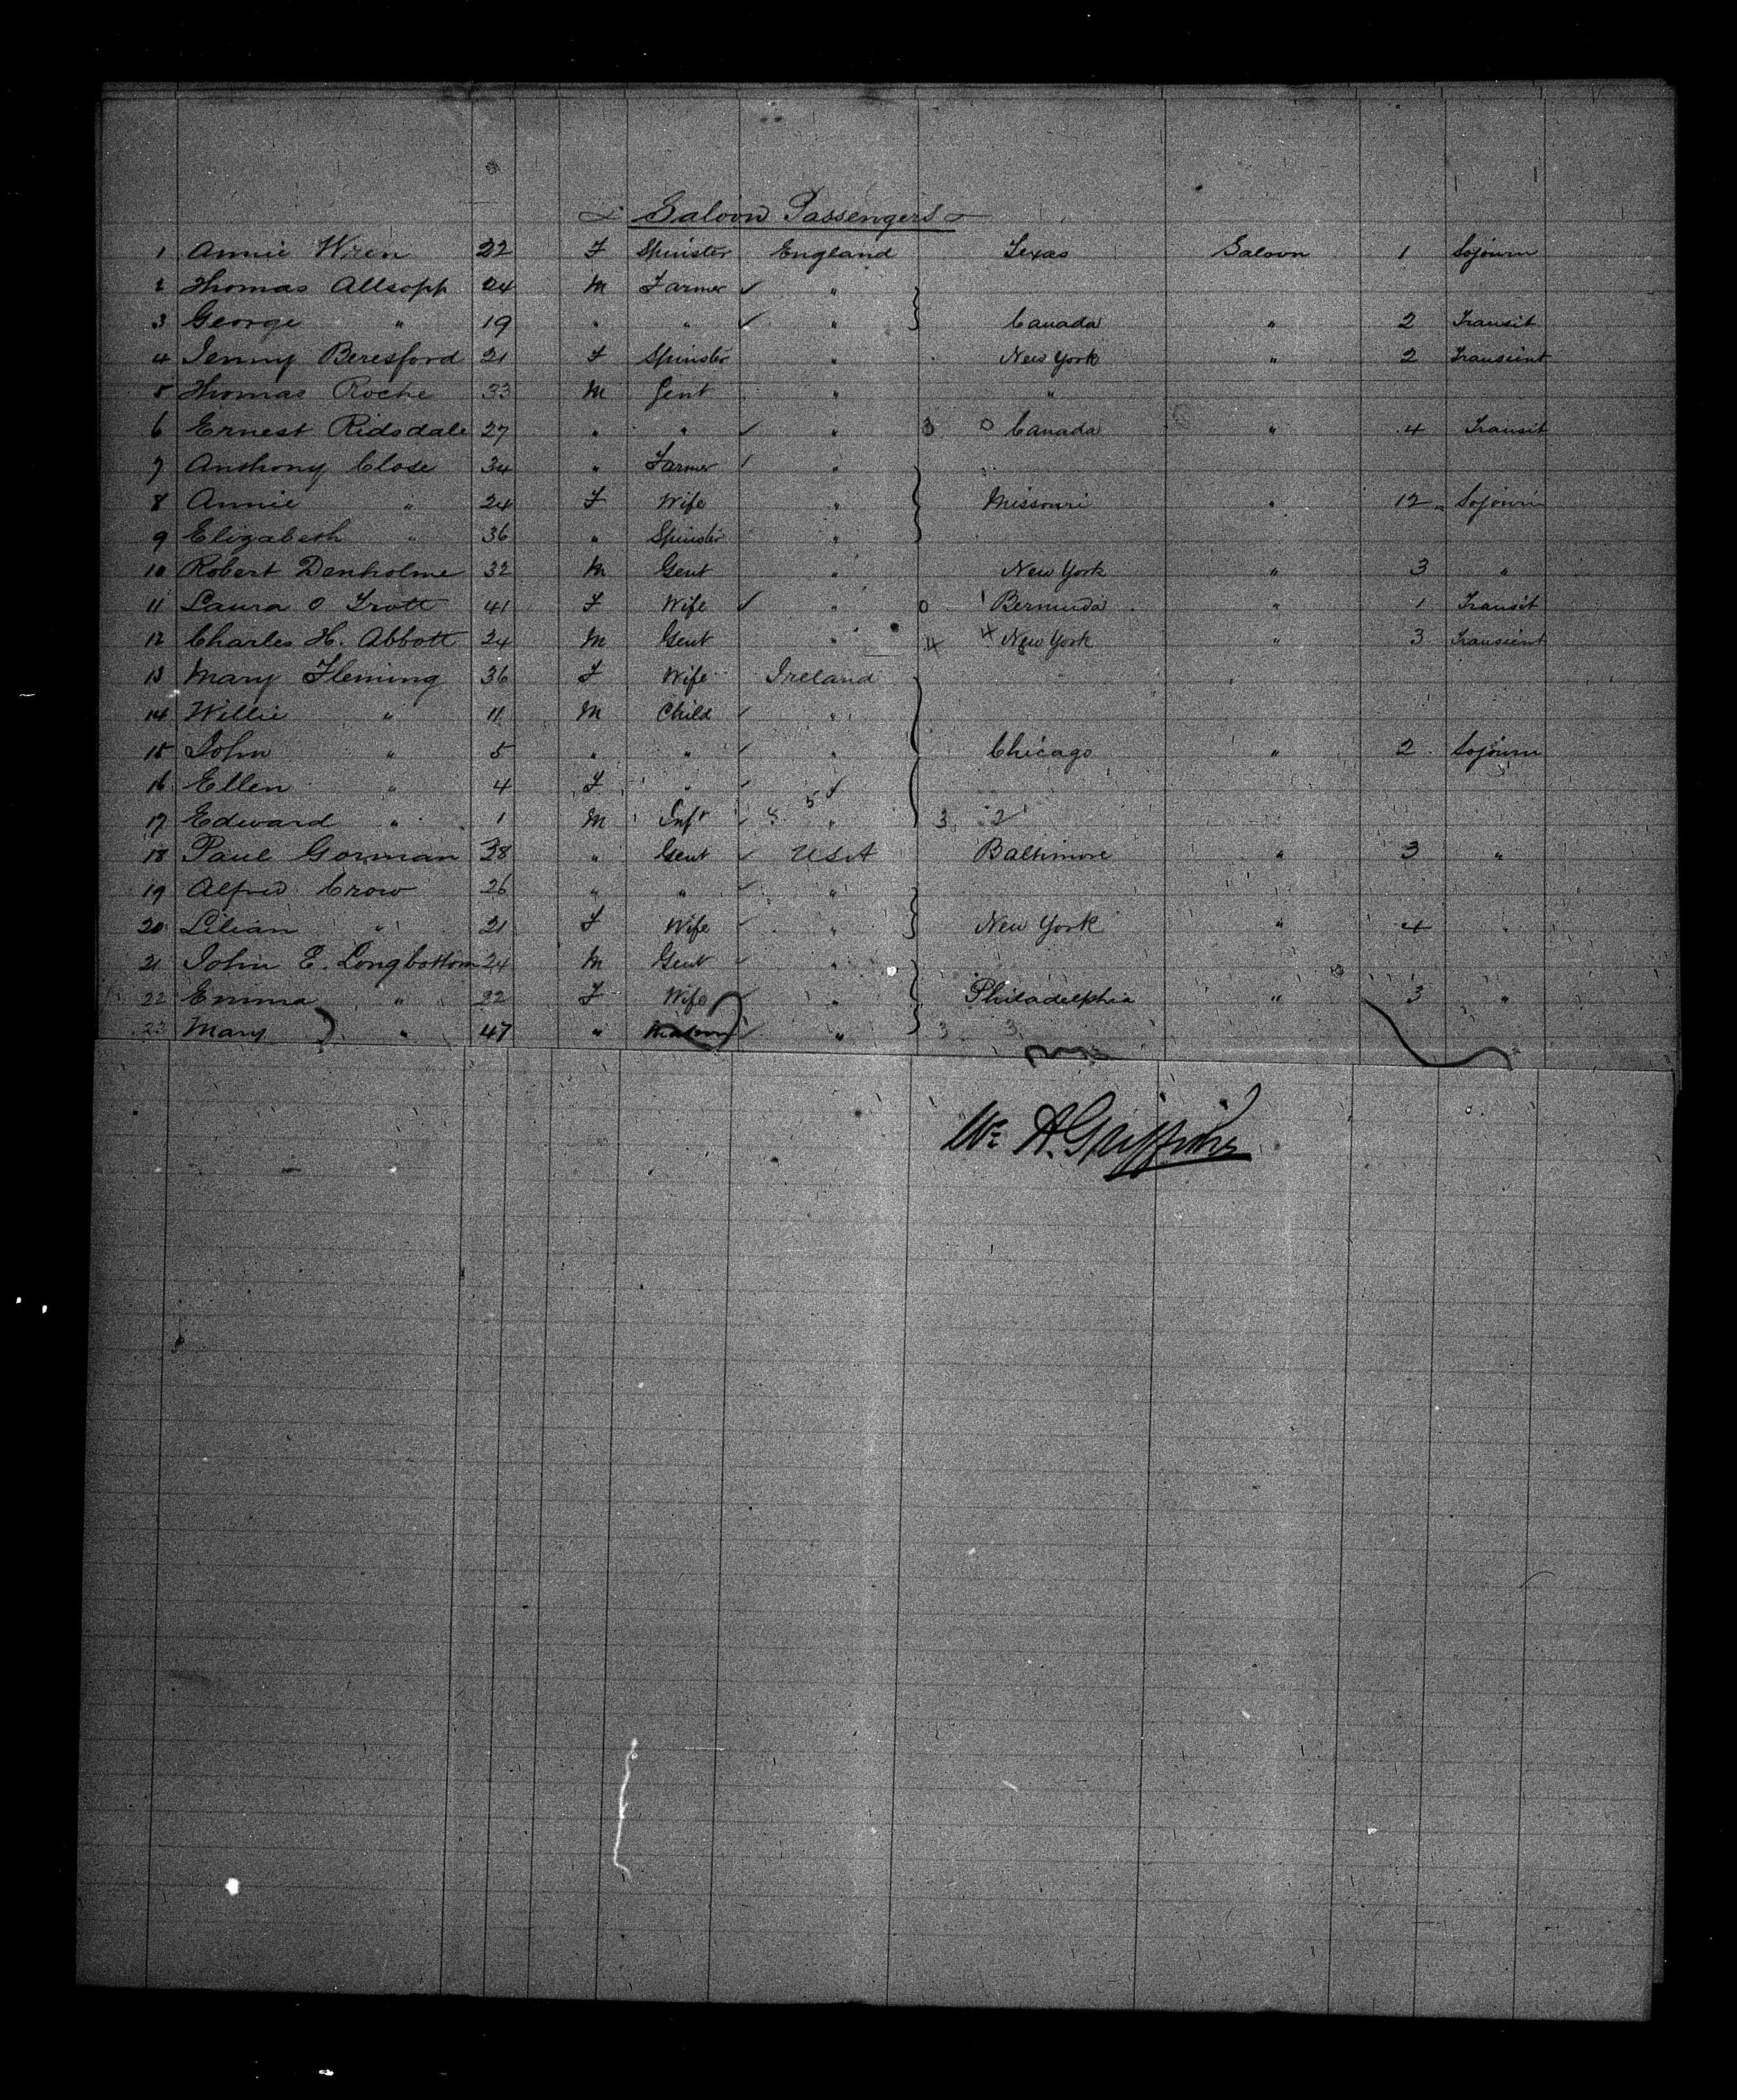 Saloon Passengers
1 Annie Wren 22 F Spinster England Texas Saloon 1 Sojourn
2 Thomas Allsopp 24 M Farmer ✓ "
3 George " 19 " " ✓ " Canada " 2 Transit
4 Jenny Beresford 21 F Spinster " New York " 2 Transient
5 Thomas Roche 33 M Gent " "
6 Ernest Ridsdale 27 " " ✓ " 3 0 Canada " 4 Transit
7 Anthony Close 34 " Farmer ✓ "
8 Annie " 24 F Wife " Missouri " 12 Sojourn
9 Elizabeth " 36 " Spinster "
10 Robert Denholme 32 M Gent " New York " 3 "
11 Laura O Trott 41 F Wife ✓ " 0 1 Bermuda " 1 Transit
12 Charles H. Abbott 24 M Gent " 4 4 New York " 3 Transient
13 Mary Fleming 36 F Wife Ireland
14 Willie " 11 M Child ✓ "
15 John " 5 " " ✓ " Chicago " 2 Sojourn
16 Ellen " 4 F " ✓ "
17 Edward " 1 M Inft ✓ " 3 2
18 Paul Gorman 38 " Gent ✓ USA Baltimore " 3 "
19 Alfred Crow 26 " " ✓ "
20 Lilian " 21 F Wife ✓ " New York " 4 "
21 John E. Longbottom 24 M Gent ✓ "
22 Emma " 22 F Wife ✓ " Philadelphia " 3 "
23 Mary " 47 " Matron ✓ " 3 3
Wm A. Griffiths